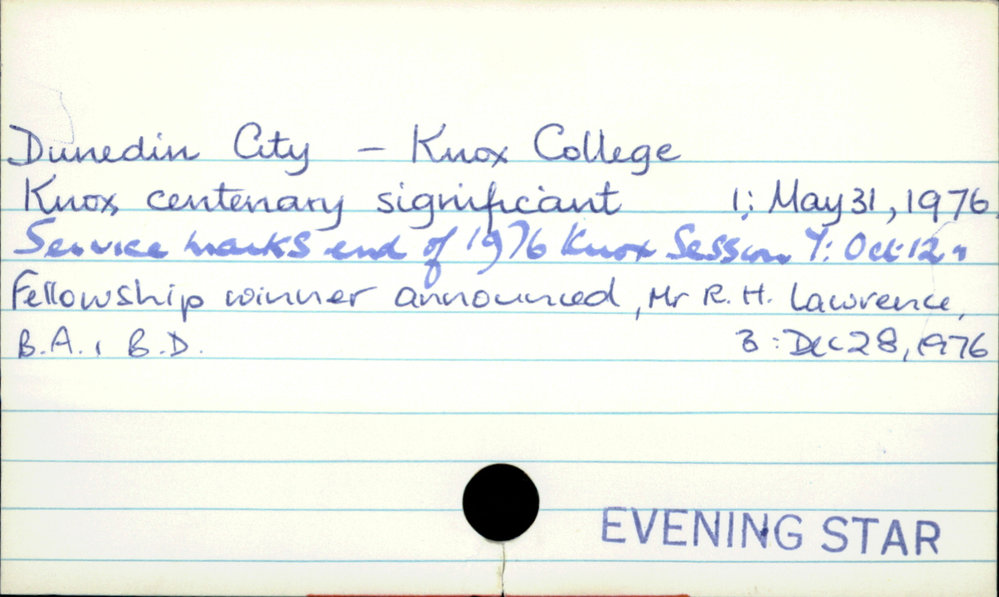 Dunedin City - Knox College
Knox centenary significant 1: May 31, 1976
Service marks end of 1976 Knox Session 7: Oct 12 "
Fellowship winner announced, Mr R. H. Lawrence,
B.A., B.D. 3: Dec 28, 1976
EVENING STAR